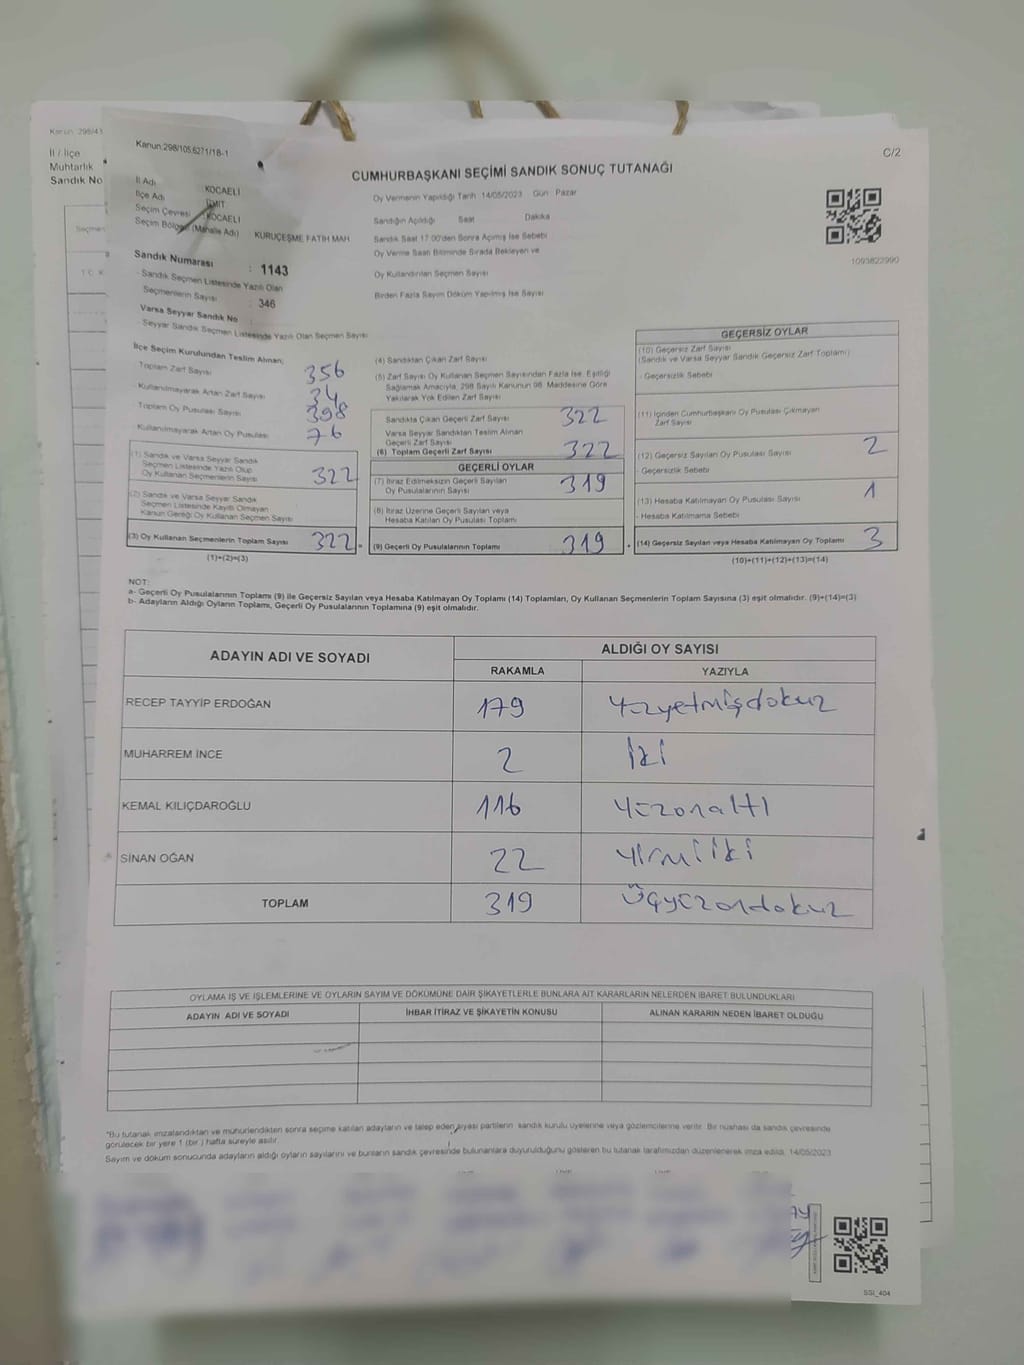 Kanun: 298/43
İl / İlçe
Muhtarlık
Sandık No
Kanun:298/105,6271/18-1
C/2
CUMHURBAŞKANI SEÇİMİ SANDIK SONUÇ TUTANAĞI
İl Adı KOCAELİ
İlçe Adı İZMİT
Seçim Çevresi KOCAELİ
Seçim Bölgesi (Mahalle Adı) KURUÇEŞME FATİH MAH
Sandık Numarası : 1143
- Sandık Seçmen Listesinde Yazılı Olan
Seçmenlerin Sayısı : 346
Varsa Seyyar Sandık No
- Seyyar Sandık Seçmen Listesinde Yazılı Olan Seçmen Sayısı
Oy Vermenin Yapıldığı Tarih 14/05/2023 Gün Pazar
Sandığın Açıldığı Saat Dakika
Sandık Saat 17:00'den Sonra Açılmış İse Sebebi
Oy Verme Saati Bitiminde Sırada Bekleyen ve
Oy Kullandırılan Seçmen Sayısı
Birden Fazla Sayım Döküm Yapılmış İse Sayısı
1093823990
İlçe Seçim Kurulundan Teslim Alınan;
Toplam Zarf Sayısı 356
- Kullanılmayarak Artan Zarf Sayısı 34
- Toplam Oy Pusulası Sayısı 398
- Kullanılmayarak Artan Oy Pusulası 76
(1) Sandık ve Varsa Seyyar Sandık
Seçmen Listesinde Yazılı Olup
Oy Kullanan Seçmenlerin Sayısı 322
(2) Sandık ve Varsa Seyyar Sandık
Seçmen Listesinde Kayıtlı Olmayan
Kanun Gereği Oy Kullanan Seçmen Sayısı
(3) Oy Kullanan Seçmenlerin Toplam Sayısı 322
(1)+(2)=(3)
(4) Sandıktan Çıkan Zarf Sayısı
(5) Zarf Sayısı Oy Kullanan Seçmen Sayısından Fazla İse, Eşitliği
Sağlamak Amacıyla, 298 Sayılı Kanunun 98. Maddesine Göre
Yakılarak Yok Edilen Zarf Sayısı
Sandıkta Çıkan Geçerli Zarf Sayısı 322
Varsa Seyyar Sandıktan Teslim Alınan
Geçerli Zarf Sayısı
(6) Toplam Geçerli Zarf Sayısı 322
GEÇERLİ OYLAR
(7) İtiraz Edilmeksizin Geçerli Sayılan
Oy Pusulalarının Sayısı 319
(8) İtiraz Üzerine Geçerli Sayılan veya
Hesaba Katılan Oy Pusulası Toplamı
(9) Geçerli Oy Pusulalarının Toplamı 319
GEÇERSİZ OYLAR
(10) Geçersiz Zarf Sayısı
(Sandık ve Varsa Seyyar Sandık Geçersiz Zarf Toplamı)
- Geçersizlik Sebebi
(11) İçinden Cumhurbaşkanı Oy Pusulası Çıkmayan
Zarf Sayısı
(12) Geçersiz Sayılan Oy Pusulası Sayısı 2
- Geçersizlik Sebebi
(13) Hesaba Katılmayan Oy Pusulası Sayısı 1
- Hesaba Katılmama Sebebi
(14) Geçersiz Sayılan veya Hesaba Katılmayan Oy Toplamı 3
(10)+(11)+(12)+(13)=(14)
NOT:
a- Geçerli Oy Pusulalarının Toplamı (9) ile Geçersiz Sayılan veya Hesaba Katılmayan Oy Toplamı (14) Toplamları, Oy Kullanan Seçmenlerin Toplam Sayısına (3) eşit olmalıdır. (9)+(14)=(3)
b- Adayların Aldığı Oyların Toplamı, Geçerli Oy Pusulalarının Toplamına (9) eşit olmalıdır.
ADAYIN ADI VE SOYADI ALDIĞI OY SAYISI
RAKAMLA YAZIYLA
RECEP TAYYİP ERDOĞAN 179 Yüzyetmişdokuz
MUHARREM İNCE 2 İki
KEMAL KILIÇDAROĞLU 116 Yüzonaltı
SİNAN OĞAN 22 yirmiiki
TOPLAM 319 Üçyüzondokuz
OYLAMA İŞ VE İŞLEMLERİNE VE OYLARIN SAYIM VE DÖKÜMÜNE DAİR ŞİKAYETLERLE BUNLARA AİT KARARLARIN NELERDEN İBARET BULUNDUKLARI
ADAYIN ADI VE SOYADI İHBAR İTİRAZ VE ŞİKAYETİN KONUSU ALINAN KARARIN NEDEN İBARET OLDUĞU
"Bu tutanak imzalandıktan ve mühürlendikten sonra seçime katılan adayların ve talep eden siyasi partilerin sandık kurulu üyelerine veya gözlemcilerine verilir. Bir nüshası da sandık çevresinde
görülecek bir yere 1 (bir ) hafta süreyle asılır.
Sayım ve döküm sonucunda adayların aldığı oyların sayılarını ve bunların sandık çevresinde bulunanlara duyurulduğunu gösteren bu tutanak tarafımızdan düzenlenerek imza edildi. 14/05/2023
SSI_404